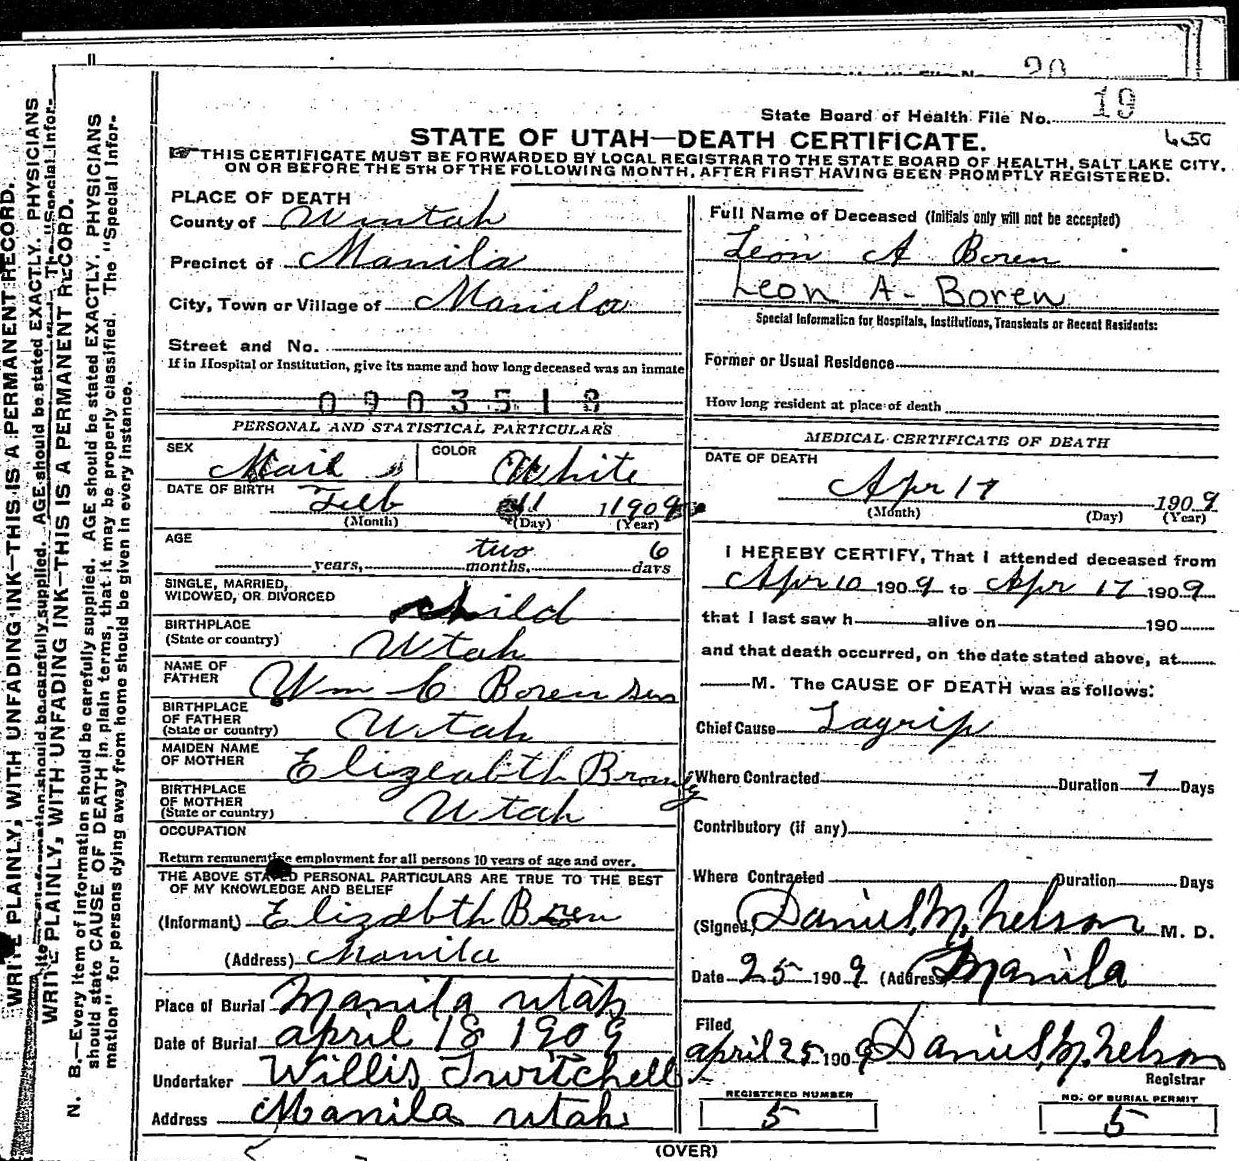 20
State Board of Health File No. 19
STATE OF UTAH—DEATH CERTIFICATE.
650
THIS CERTIFICATE MUST BE FORWARDED BY LOCAL REGISTRAR TO THE STATE BOARD OF HEALTH, SALT LAKE CITY,
ON OR BEFORE THE 5TH OF THE FOLLOWING MONTH, AFTER FIRST HAVING BEEN PROMPTLY REGISTERED.
PLACE OF DEATH
County of Uintah
Precinct of Manila
City, Town or Village of Manila
Street and No.
If in Hospital or Institution, give its name and how long deceased was an inmate
0903518
PERSONAL AND STATISTICAL PARTICULARS
SEX Mail COLOR White
DATE OF BIRTH Feb 11 1909
(Month) (Day) (Year)
AGE two 6
years, months, days
SINGLE, MARRIED,
WIDOWED, OR DIVORCED child
BIRTHPLACE
(State or country) Utah
NAME OF
FATHER Wm C Boren
BIRTHPLACE
OF FATHER
(State or country) Utah
MAIDEN NAME
OF MOTHER Elizeabth
BIRTHPLACE
OF MOTHER
(State or country) Utah
OCCUPATION
Return remunerative employment for all persons 10 years of age and over.
THE ABOVE STATED PERSONAL PARTICULARS ARE TRUE TO THE BEST
OF MY KNOWLEDGE AND BELIEF
(Informant) Elizabth Boren
(Address) Manila
Place of Burial Manila utah
Date of Burial april 18 1909
Undertaker Willis Twitchell
Address Manila utah
Full Name of Deceased (Initials only will not be accepted)
Leon A Boren
Leon A- Boren
Special Information for Hospitals, Institutions, Transients or Recent Residents:
Former or Usual Residence
How long resident at place of death
MEDICAL CERTIFICATE OF DEATH
DATE OF DEATH
Apr 17 1909
(Month) (Day) (Year)
I HEREBY CERTIFY, That I attended deceased from
Apr 10 1909 to Apr 17 1909
that I last saw h alive on 190
and that death occurred, on the date stated above, at
M. The CAUSE OF DEATH was as follows:
Chief Cause Lagrip
Where Contracted Duration 7 Days
Contributory (if any)
Where Contracted Duration Days
(Signed) Daniel M. Nelson M. D.
Date 25 1909 (Address) Manila
Filed
april 25 1909 Daniel M. Nelson
Registrar
REGISTERED NUMBER
5
NO. OF BURIAL PERMIT
5
(OVER)
WRITE PLAINLY, WITH UNFADING INK—THIS IS A PERMANENT RECORD.
WRITE PLAINLY, WITH UNFADING INK—THIS IS A PERMANENT RECORD.
N. B.—Every item of information should be carefully supplied. AGE should be stated EXACTLY. PHYSICIANS
should state CAUSE OF DEATH in plain terms, that it may be properly classified. The "Special Infor-
mation" for persons dying away from home should be given in every instance.